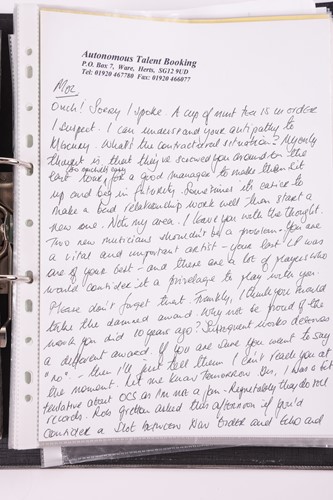 Autonomous Talent Booking
P.O. Box 7, Ware, Herts, SG12 9UD
Tel: 01920 467780 Fax: 01920 466077
Moz
Ouch! Sorry I spoke. A cup of mint tea is in order
I suspect. I can understand your antipathy to
Mercury. What's the contractual situation? My only
thought is that they've screwed you around on the
last two albums. Easy for a good manager to make them sit
up and beg in futurity. Sometimes it's easier to
make a bad relationship work well than start a
new one. Not my area. I leave you with the thought.
Two new musicians shouldn't be a problem. You are
a vital and important artist - your last LP was
one of your best - and there are a lot of players who
would consider it a privelage to play with you.
Please don't forget that. Frankly, I think you should
take the damned award. Why not be proud of the
work you did 10 years ago? Subsequent works deserves
a different award. If you are sure you want to say
"no" - then I'll just tell them I can't reach you at
the moment. Let me know tomorrow. Yes, I was a bit
tentative about OCS as I'm not a fan. Regretably they do sell
records. Rob Gretton asked this afternoon if you'd
consider a slot between New Order and Echo and